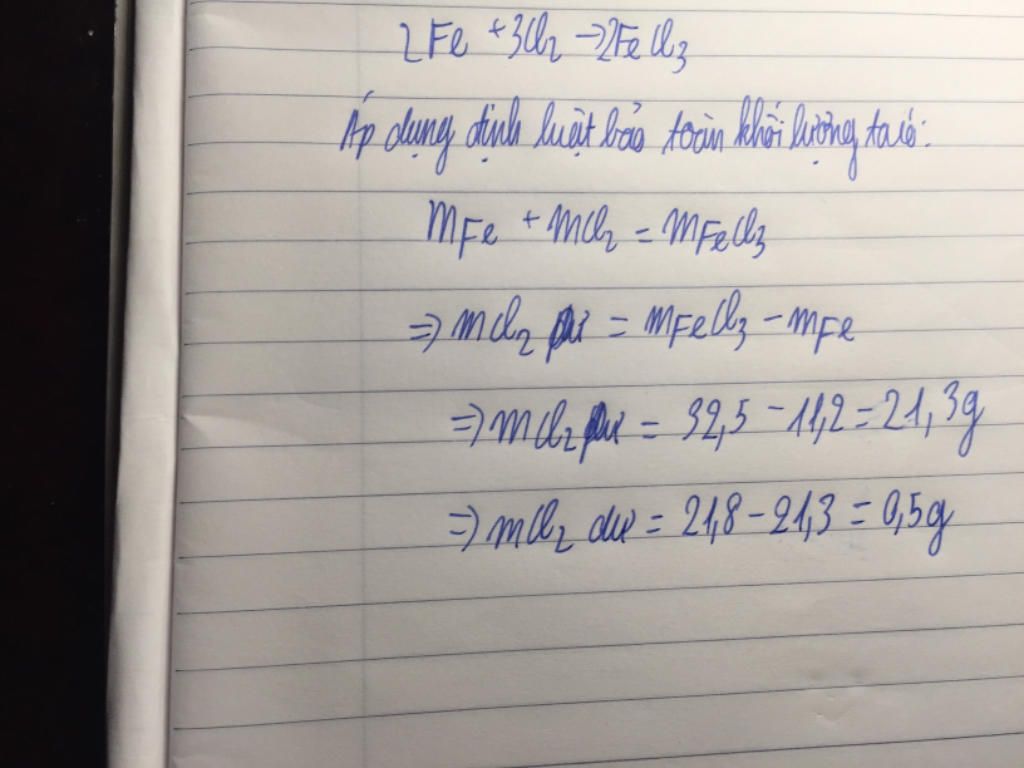 2Fe + 3Cl2 → 2FeCl3
Áp dụng định luật bảo toàn khối lượng ta có:
mFe + mCl2 = mFeCl3
=> mCl2 = mFeCl3 - mFe
=> mCl2 = 32,5 - 11,2 = 21,3g
=> mCl2 dư = 21,8 - 21,3 = 0,5g